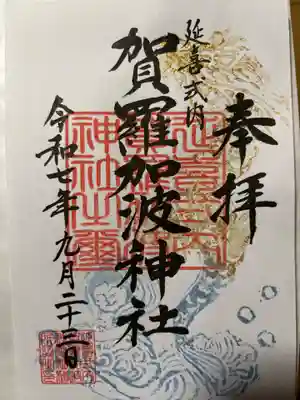 奉拝
延喜式内
賀羅加波神社
令和七年九月二十三日